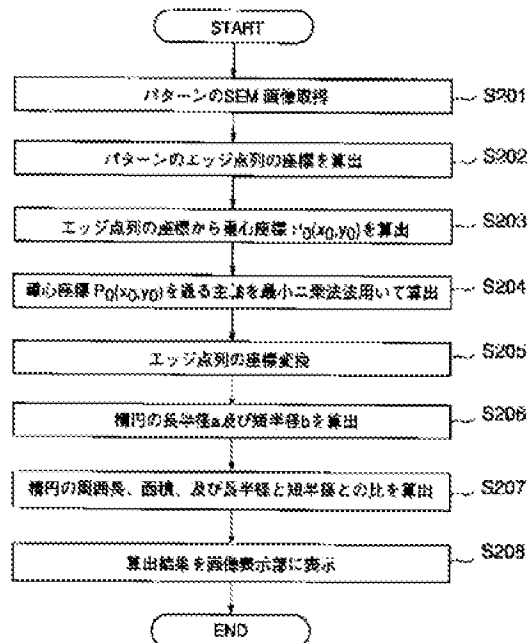 START
パターンのSEM 画像取得
S201
パターンのエッジ点列の座標を算出
S202
エッジ点列の座標から重心座標 P0(x0,y0)を算出
S203
重心座標 P0(x0,y0)を通る主軸を最小二乗法法用いて算出
S204
エッジ点列の座標変換
S205
楕円の長半径a及び短半径bを算出
S206
楕円の周囲長、面積、及び長半径と短半径との比を算出
S207
算出結果を画像表示部に表示
S208
END